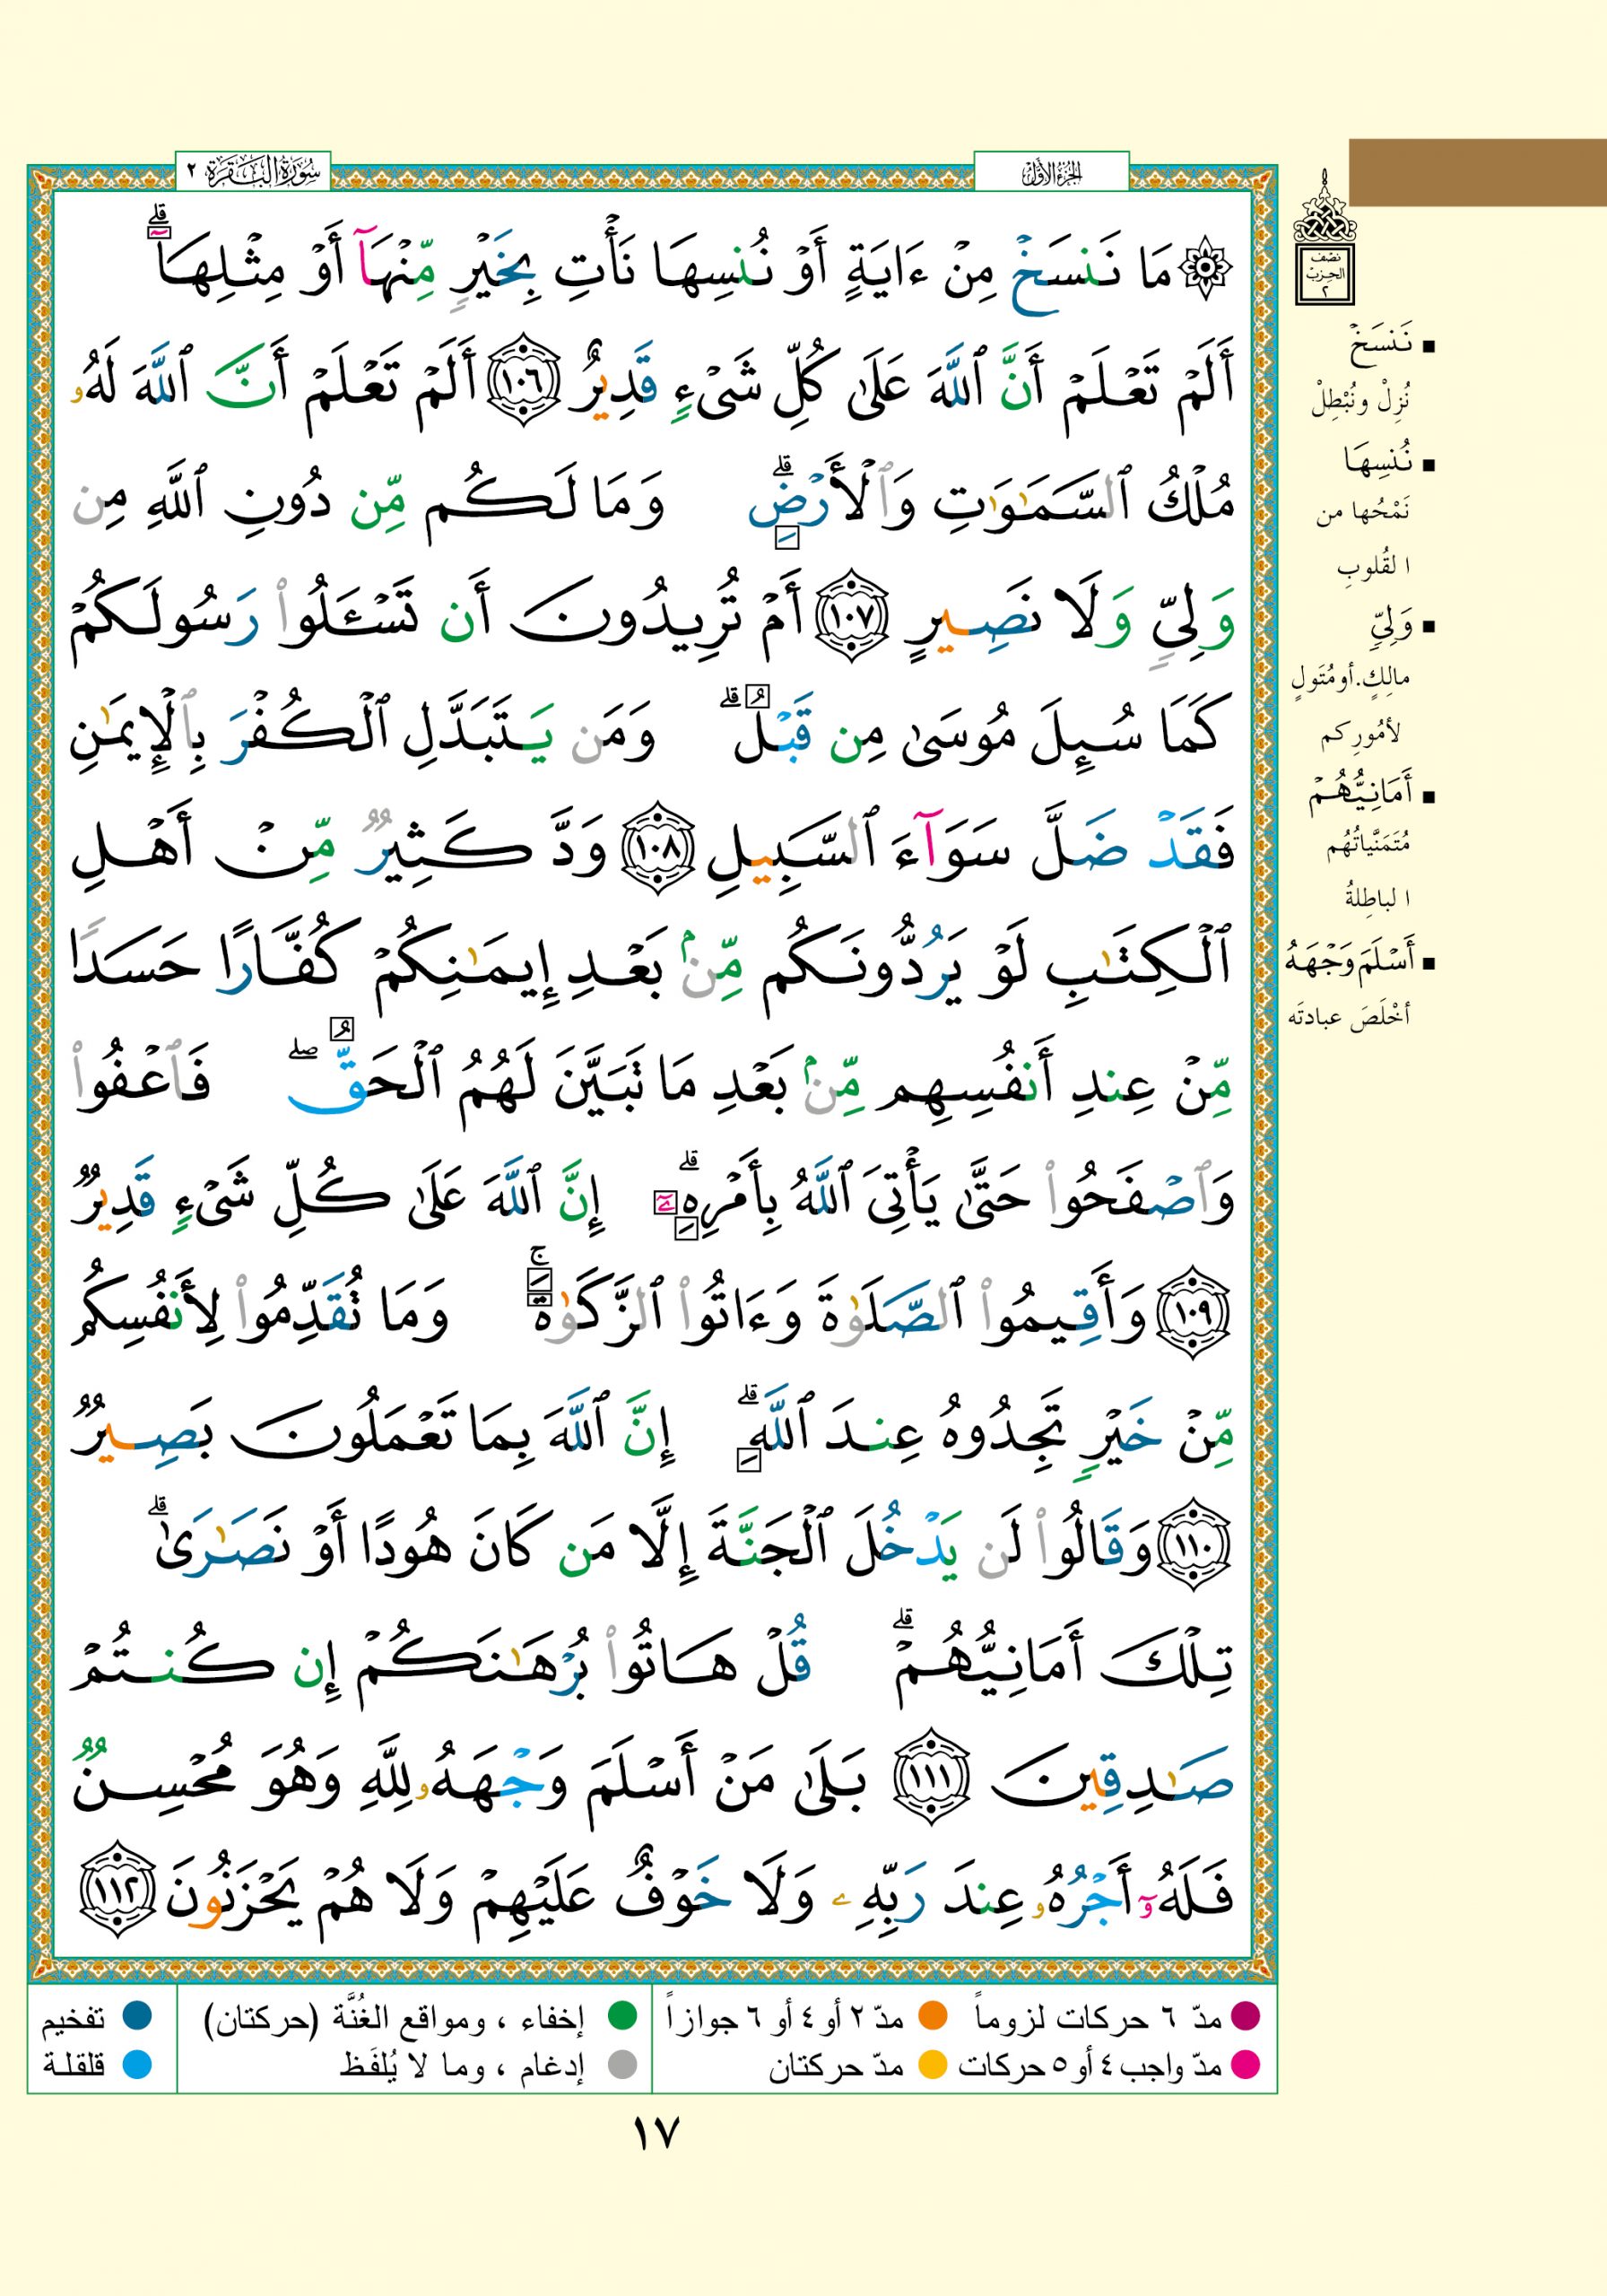 الجزء الأول
سورة البقرة ٢
نصف
الحزب
٢
۞ مَا نَنسَخْ مِنْ ءَايَةٍ أَوْ نُنسِهَا نَأْتِ بِخَيْرٍ مِّنْهَآ أَوْ مِثْلِهَآ ۗ
أَلَمْ تَعْلَمْ أَنَّ ٱللَّهَ عَلَىٰ كُلِّ شَىْءٍ قَدِيرٌ ١٠٦ أَلَمْ تَعْلَمْ أَنَّ ٱللَّهَ لَهُۥ
مُلْكُ ٱلسَّمَٰوَٰتِ وَٱلْأَرْضِ ۗ وَمَا لَكُم مِّن دُونِ ٱللَّهِ مِن
وَلِىٍّ وَلَا نَصِيرٍ ١٠٧ أَمْ تُرِيدُونَ أَن تَسْـَٔلُوا۟ رَسُولَكُمْ
كَمَا سُئِلَ مُوسَىٰ مِن قَبْلُ ۗ وَمَن يَتَبَدَّلِ ٱلْكُفْرَ بِٱلْإِيمَٰنِ
فَقَدْ ضَلَّ سَوَآءَ ٱلسَّبِيلِ ١٠٨ وَدَّ كَثِيرٌ مِّنْ أَهْلِ
ٱلْكِتَٰبِ لَوْ يَرُدُّونَكُم مِّنۢ بَعْدِ إِيمَٰنِكُمْ كُفَّارًا حَسَدًا
مِّنْ عِندِ أَنفُسِهِم مِّنۢ بَعْدِ مَا تَبَيَّنَ لَهُمُ ٱلْحَقُّ ۖ فَٱعْفُوا۟
وَٱصْفَحُوا۟ حَتَّىٰ يَأْتِىَ ٱللَّهُ بِأَمْرِهِۦٓ ۗ إِنَّ ٱللَّهَ عَلَىٰ كُلِّ شَىْءٍ قَدِيرٌ
١٠٩ وَأَقِيمُوا۟ ٱلصَّلَوٰةَ وَءَاتُوا۟ ٱلزَّكَوٰةَ ۚ وَمَا تُقَدِّمُوا۟ لِأَنفُسِكُم
مِّنْ خَيْرٍ تَجِدُوهُ عِندَ ٱللَّهِ ۗ إِنَّ ٱللَّهَ بِمَا تَعْمَلُونَ بَصِيرٌ
١١٠ وَقَالُوا۟ لَن يَدْخُلَ ٱلْجَنَّةَ إِلَّا مَن كَانَ هُودًا أَوْ نَصَٰرَىٰ ۗ
تِلْكَ أَمَانِيُّهُمْ ۗ قُلْ هَاتُوا۟ بُرْهَٰنَكُمْ إِن كُنتُمْ
صَٰدِقِينَ ١١١ بَلَىٰ مَنْ أَسْلَمَ وَجْهَهُۥ لِلَّهِ وَهُوَ مُحْسِنٌ
فَلَهُۥٓ أَجْرُهُۥ عِندَ رَبِّهِۦ وَلَا خَوْفٌ عَلَيْهِمْ وَلَا هُمْ يَحْزَنُونَ ١١٢
■ نَنسَخْ
نُزِلْ ونُبْطِلْ
■ نُنسِهَا
نَمْحُها من
القُلوبِ
■ وَلِيٍّ
مالِكٍ.أو مُتَولٍ
لأمُورِكم
■ أَمَانِيُّهُمْ
مُتَمَنَّياتُهُم
الباطِلةُ
■ أَسْلَمَ وَجْهَهُ
أخْلَصَ عبادتَه
مدّ ٦ حركات لزوماً مدّ ٢ أو ٤ أو ٦ جوازاً إخفاء ، ومواقع الغُنَّة (حركتان) تفخيم
مدّ واجب ٤ أو ٥ حركات مدّ حركتان إدغام ، وما لا يُلفَظ قلقلة
١٧